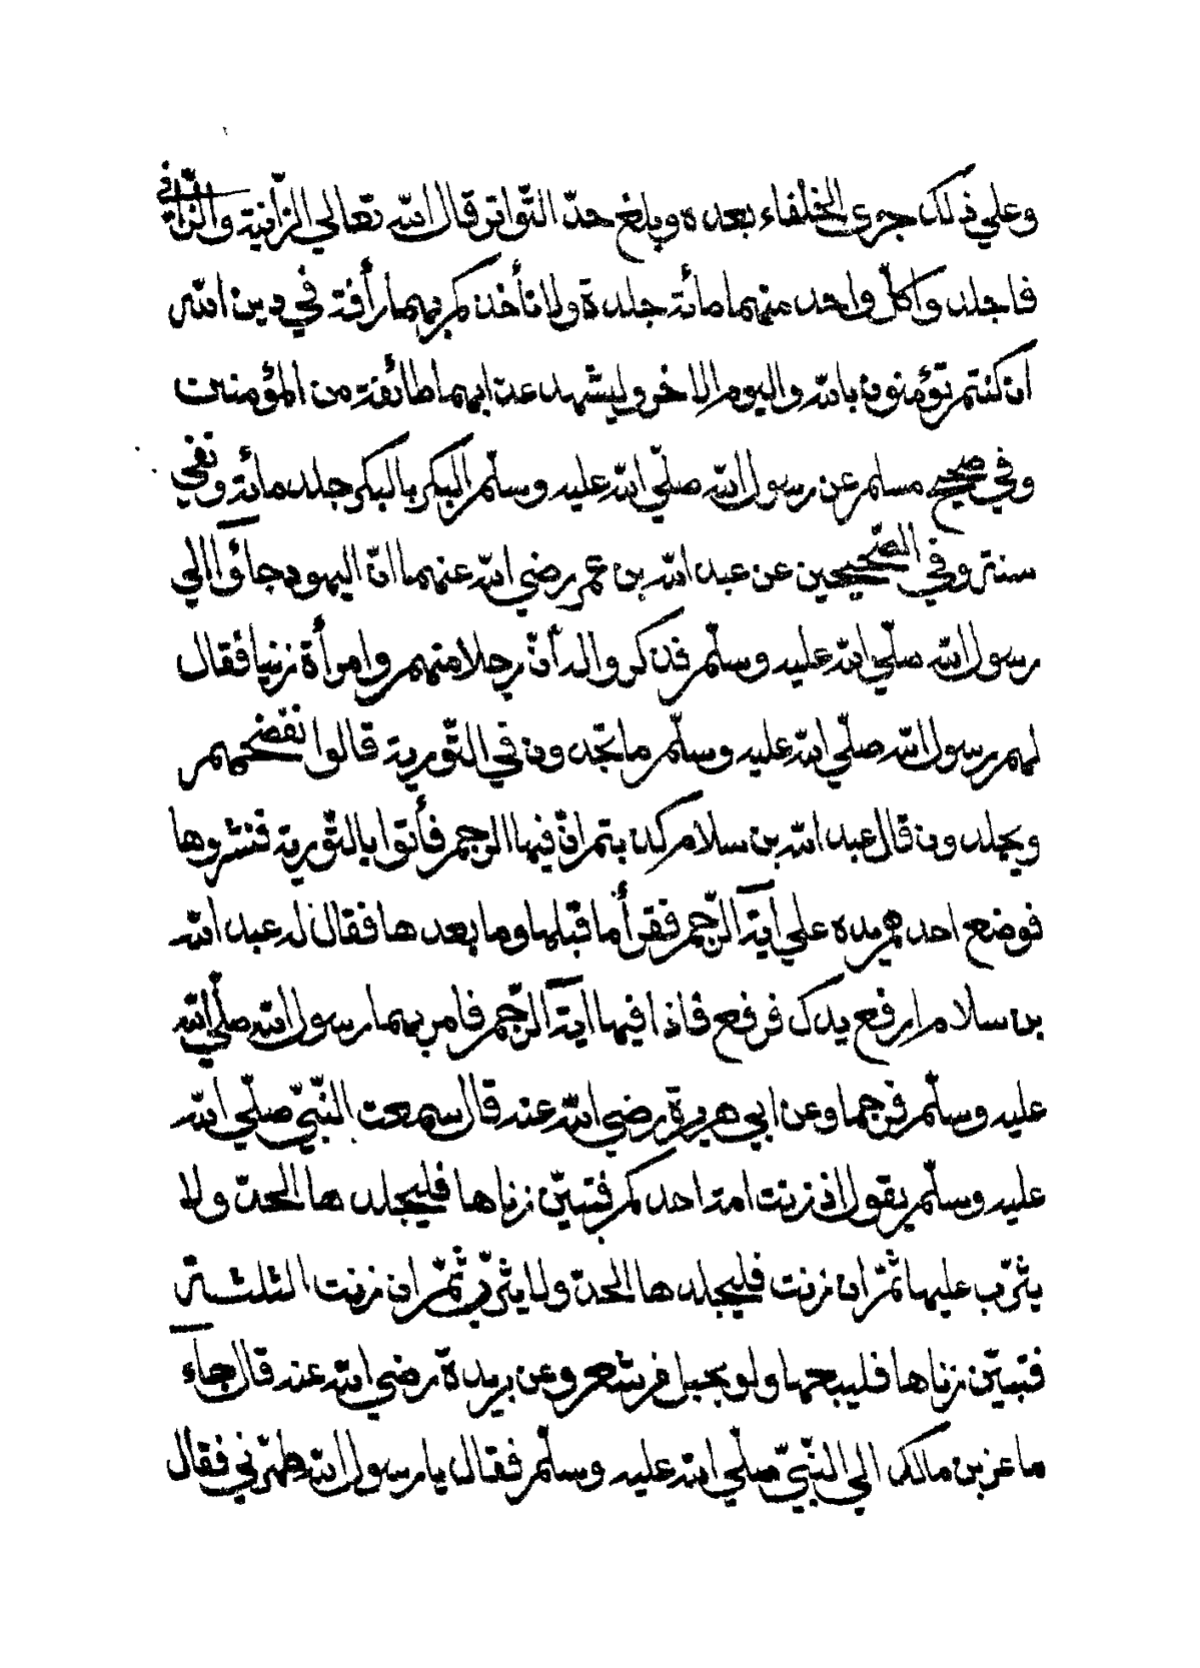 وعلي ذلك جري الخلفاء بعده وبلغ حدّ التّواتر قال الله تعالي الزّانية والزّاني
فاجلدوا كلّ واحد منهما مائة جلدة ولا تأخذكم بهما رأفة في دين الله
ان كنتم تؤمنون بالله واليوم الاخر وليشهد عذابهما طائفة من المؤمنين
وفي صحيح مسلم عن رسول الله صلّي الله عليه وسلّم البكر بالبكر جلد مائة ونفي
سنة وفي الصّحيحين عن عبد الله بن عمر رضي الله عنهما انّ اليهود جاؤا الي
رسول الله صلّي الله عليه وسلّم فذكروا له أنّ رجلا منهم وامرأة زنيا فقال
لهم رسول الله صلّي الله عليه وسلّم ما تجدون في التّورية قالوا نفضحهم
ويجلدون قال عبد الله بن سلام كذبتم انّ فيها الرجم فأتوا بالتّورية فنشروها
فوضع احدهم يده علي آية الرّجم فقرأ ما قبلها وما بعدها فقال له عبد الله
بن سلام ارفع يدك فرفع فاذا فيها اية الرّجم فامر بهما رسول الله صلّي الله
عليه وسلّم فرجما وعن ابي هريرة رضي الله عنه قال سمعت النّبيّ صلّي الله
عليه وسلّم يقول اذ زنت امة احدكم فتبيّن زناها فليجلدها الحدّ ولا
يثرّب عليها ثمّ ان زنت فليجلدها الحدّ ولا يثرّب ثمّ ان زنت الثلثة
فتبيّن زناها فليبعها ولو بحبل من شعر وعن بريدة رضي الله عنه قال جاء
ماعز بن مالك الي النّبيّ صلّي الله عليه وسلّم فقال يا رسول الله طهّرني فقال